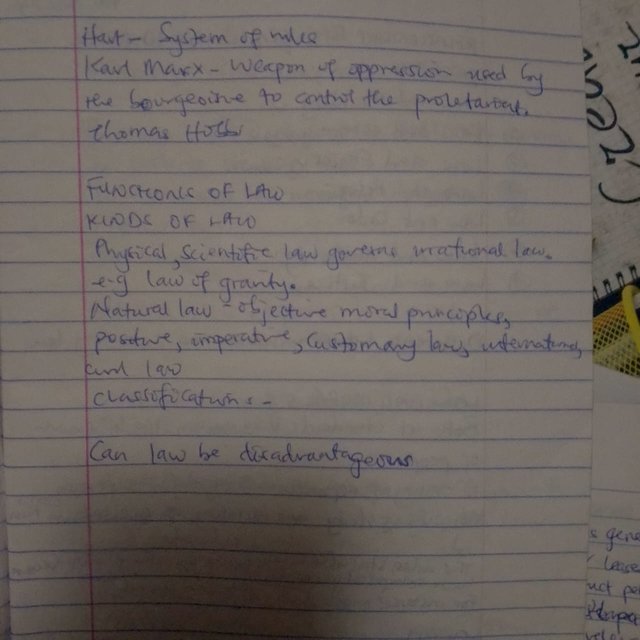 Hart - System of rules
Karl Marx - Weapon of oppression used by
the bourgeoisie to control the proletariat.
Thomas Hobbs
FUNCTIONS OF LAW
KINDS OF LAW
Physical, Scientific law governs irrational law.
e.g law of gravity.
Natural law objective moral principles,
positive, imperative, customary law, international
civil law
classifications -
Can law be disadvantageous